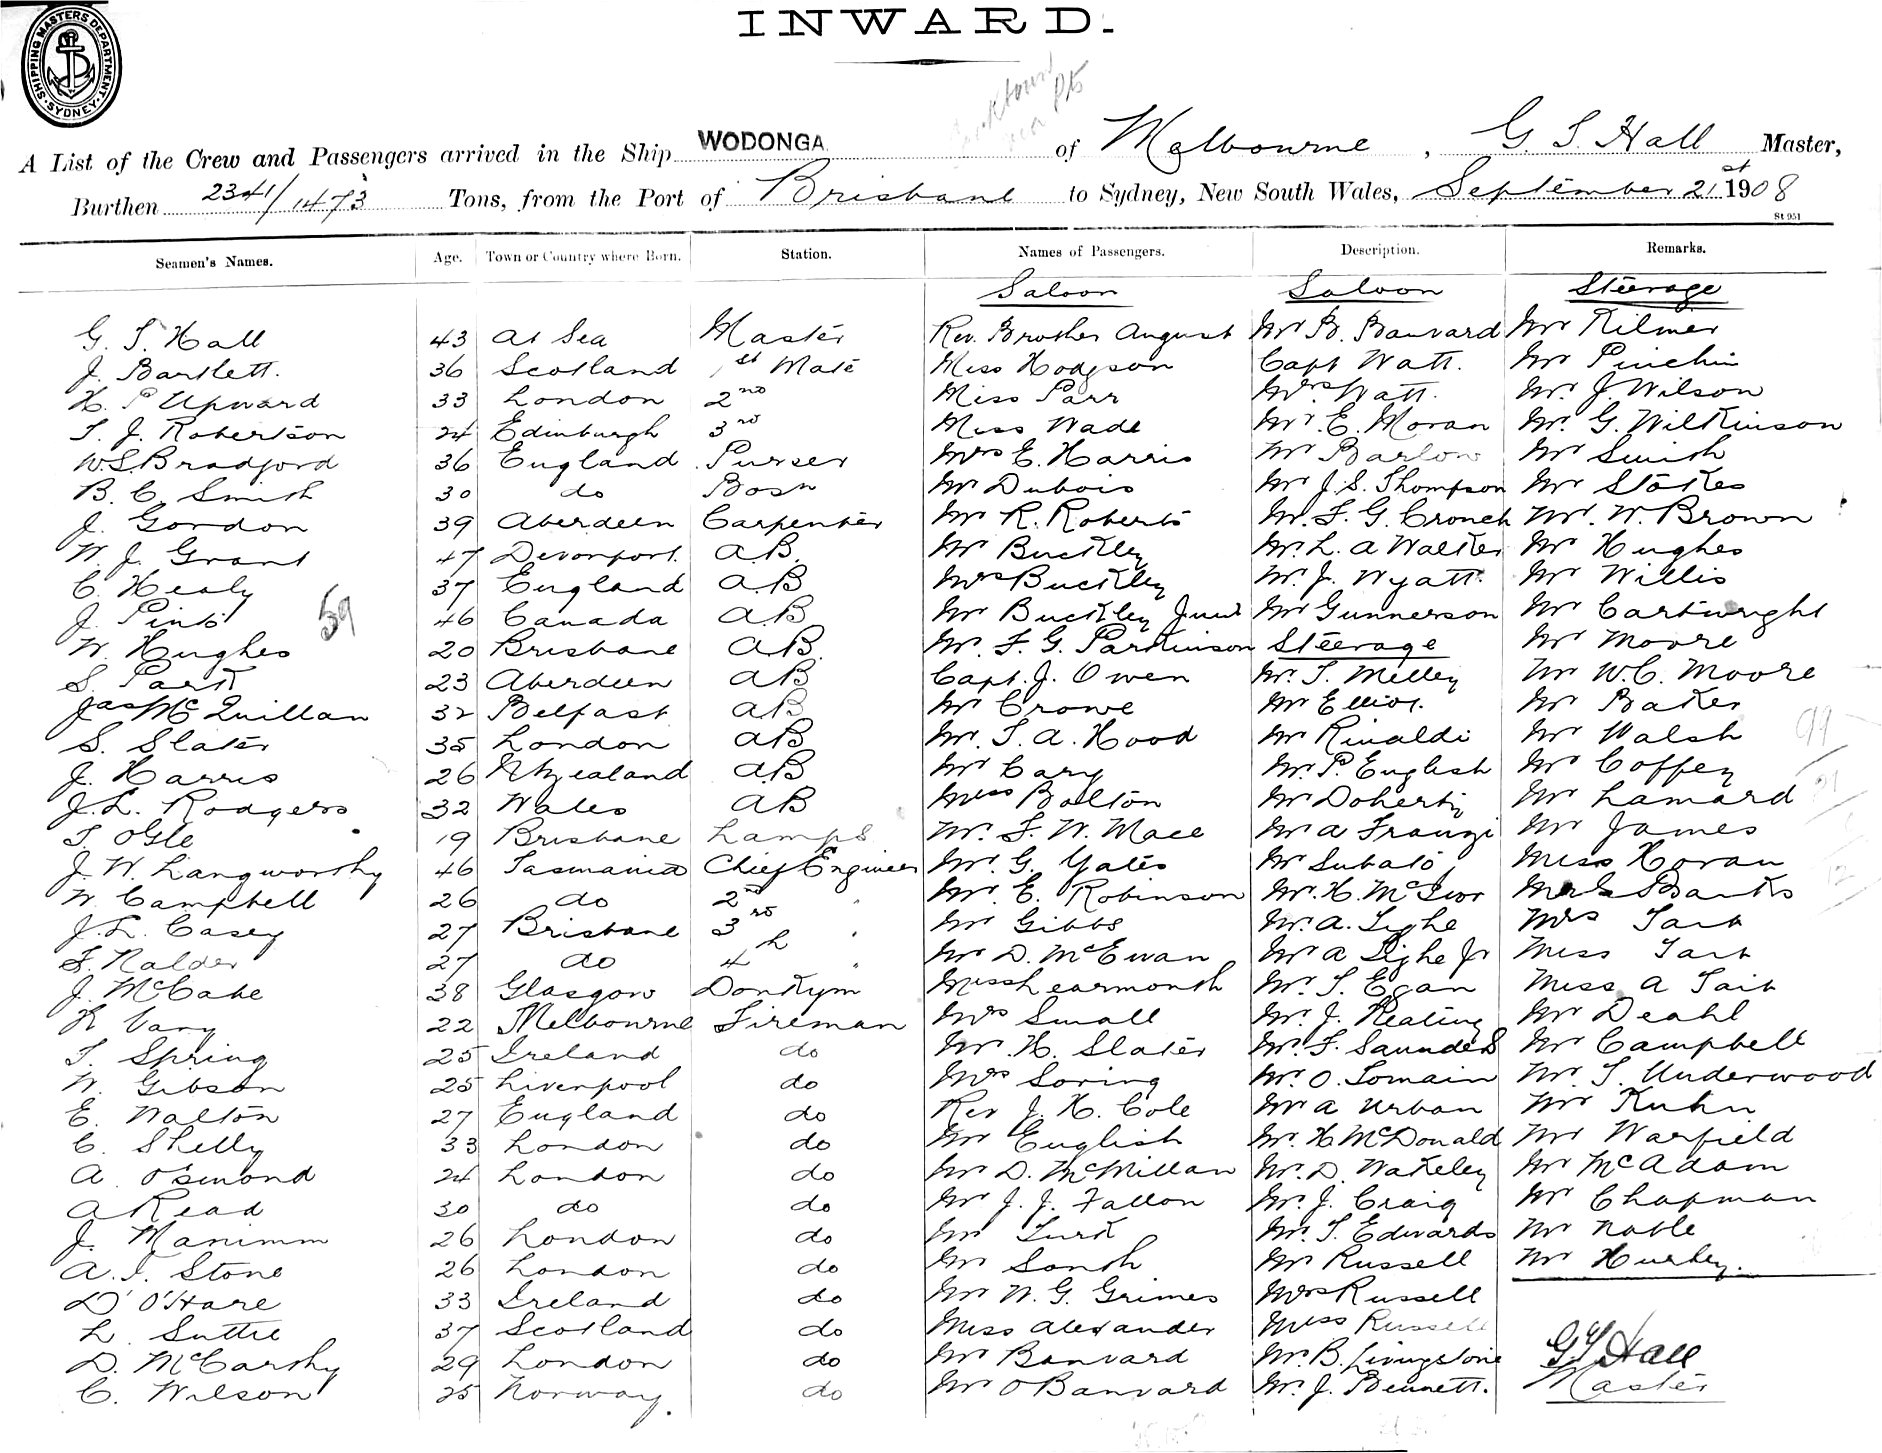 INWARD.
SHIPPING MASTERS DEPARTMENT. SYDNEY.
A List of the Crew and Passengers arrived in the Ship WODONGA of Melbourne, G. S. Hall Master,
Burthen 2341/1473 Tons, from the Port of Brisbane to Sydney, New South Wales, September 21st 1908
St 951
Seamen's Names. Age. Town or Country where Born. Station. Names of Passengers. Description. Remarks.
Saloon Saloon Steerage
G. S. Hall 43 At Sea Master Rev. Brother August Mr B. Banvard Mr Kilmer
J. Bartlett. 36 Scotland 1st Mate Miss Hodgson Capt Watt. Mr Pinchin
H. P Upward 33 London 2nd Miss Parr Mrs Watt. Mr. J. Wilson
T. J. Robertson 24 Edinburgh 3rd Miss Wade Mr. E. Moran Mr. G. Wilkinson
W.S. Bradford 36 England Purser Mrs E. Harris Mr Barlow Mr Smith
B. C. Smith 30 do Bosn Mr Dubois Mr J. S. Thompson Mr Stokes
J. Gordon 39 Aberdeen Carpenter Mr R. Roberts Mr. F. G. Crouch Mr. W. Brown
W. J. Grant 47 Devonport. A.B. Mr Buckley Mr. L. A Walker Mr Hughes
C. Healy 37 England A.B Mrs Buckley Mr. J. Wyatt. Mr Willis
J. Pinto 46 Canada A.B Mr Buckley Junr Mr Gunnerson Mr Cartwright
59
W. Hughes 20 Brisbane A.B. Mr. F. G. Parkinson Steerage Mr Moore
S. Park 23 Aberdeen A.B Capt. J. Owen Mr. T. Melley Mr W. C. Moore
Jas McQuillan 32 Belfast A.B Mr Crowe Mr Elliot. Mr Baker
S. Slater 35 London A.B Mr. T. A. Hood Mr Rinaldi Mr Walsh
99
J. Harris 26 N Zealand A.B Mr Cary Mr. P. English Mr Coffey
J. L. Rodgers 32 Wales A.B Miss Bolton Mr Doherty Mr Lamard
T. Ogle 19 Brisbane Lamps Mr. F. W. Mace Mr A Franzi Mr James
J. W. Langworthy 46 Tasmania Chief Engineer Mr. G. Yates Mr Miss Horan
W. Campbell 26 do 2nd " Mr. E. Robinson Mr. H. McIvor Banks
J. L. Casey 27 Brisbane 3rd " Mr Gibbs Mr. A. Tighe Mrs Tait
F. Nalder 27 do 4th " Mr D. McEwan Mr A Tighe Jr Miss Tait
J. McCabe 38 Glasgow Donkym Miss Learmonth Mr. T. Egan Miss A Tait
K Vany 22 Melbourne Fireman Mrs Small Mr. J. Keating Mr Deahl
T. Spring 25 Ireland do Mr. H. Slater Mr. F. Saunders Mr Campbell
W. Gibson 25 Liverpool do Mrs Soring Mr. O. Tomain Mr. T. Underwood
E. Walton 27 England do Rev J. H. Cole Mr A Urban Mr Kuhn
C. Shelly 33 London do Mr English Mr. H McDonald Mr Warfield
A. Osmond 24 London do Mr D. McMillan Mr. D. Wakeley Mr McAdam
A Read 30 do do Mr J. J. Fallon Mr. J. Craig Mr Chapman
J. Manimm 26 London do Mr Turk Mr. T. Edwards Mr Noble
A. T. Stone 26 London do Mr Mr Russell Mr Hurley.
D O'Hare 33 Ireland do Mr W. G. Grimes Mrs Russell
L. Suttie 37 Scotland do Miss Alexander Miss Russell
D. McCarthy 29 London do Mr Banvard Mr. B. Livingstone G S Hall
C. Wilson 25 Norway. do Mr O Banvard Mr. J. Bennett. Master